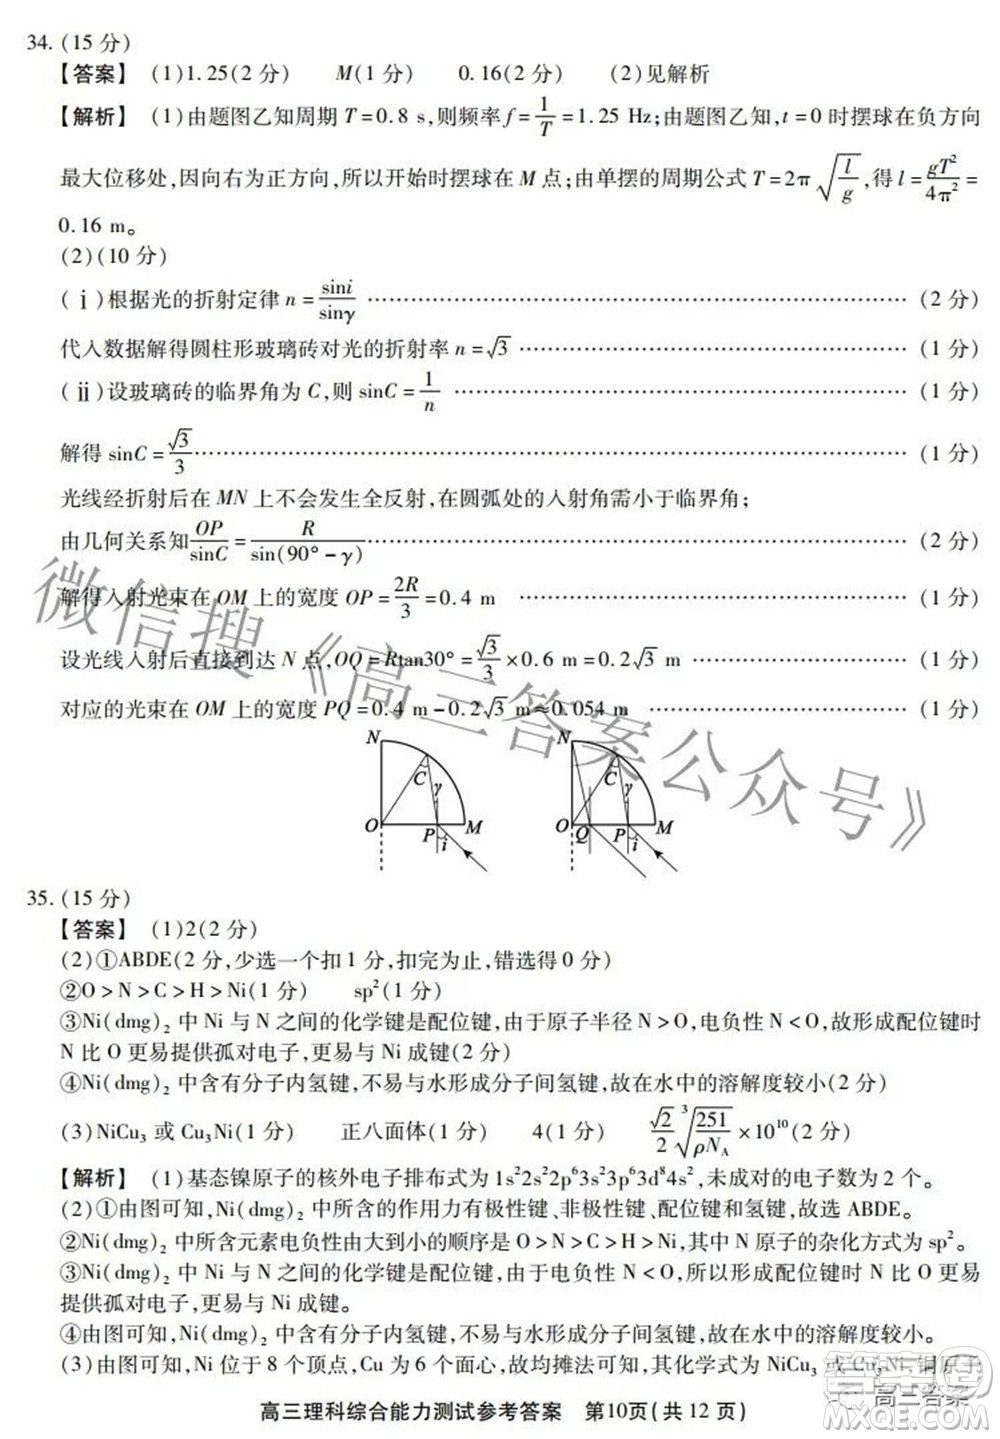 34. (15 分)
【答案】 (1)1.25(2 分)  M(1 分)  0.16(2 分)  (2)见解析
【解析】 (1)由题图乙知周期 T=0.8 s,则频率 f=1/T=1.25 Hz;由题图乙知,t=0 时摆球在负方向
最大位移处,因向右为正方向,所以开始时摆球在 M 点;由单摆的周期公式 T=2π√(l/g),得 l=gT²/4π²=
0.16 m。
(2)(10 分)
(ⅰ)根据光的折射定律 n=sini/sinγ ……………………………………………… (2 分)
代入数据解得圆柱形玻璃砖对光的折射率 n=√3 ……………………………… (1 分)
(ⅱ)设玻璃砖的临界角为 C,则 sinC=1/n ……………………………………… (1 分)
解得 sinC=√3/3 ………………………………………………………………… (1 分)
光线经折射后在 MN 上不会发生全反射,在圆弧处的入射角需小于临界角;
由几何关系知 OP/sinC=R/sin(90°−γ) …………………………………………… (2 分)
解得入射光束在 OM 上的宽度 OP=2R/3=0.4 m ……………………………… (1 分)
设光线入射后直接到达 N 点,OQ=Rtan30°=√3/3×0.6 m=0.2√3 m ………… (1 分)
对应的光束在 OM 上的宽度 PQ=0.4 m−0.2√3 m≈0.054 m ………………… (1 分)
N C γ O P M i
N C γ O Q P M i
35. (15 分)
【答案】 (1)2(2 分)
(2)①ABDE(2 分,少选一个扣 1 分,扣完为止,错选得 0 分)
②O>N>C>H>Ni(1 分)  sp²(1 分)
③Ni(dmg)₂ 中 Ni 与 N 之间的化学键是配位键,由于原子半径 N>O,电负性 N<O,故形成配位键时
N 比 O 更易提供孤对电子,更易与 Ni 成键(2 分)
④Ni(dmg)₂ 中含有分子内氢键,不易与水形成分子间氢键,故在水中的溶解度较小(2 分)
(3)NiCu₃ 或 Cu₃Ni(1 分)  正八面体(1 分)  4(1 分)  √2/2 ∛(251/ρN_A)×10¹⁰(2 分)
【解析】 (1)基态镍原子的核外电子排布式为 1s²2s²2p⁶3s²3p⁶3d⁸4s²,未成对的电子数为 2 个。
(2)①由图可知,Ni(dmg)₂ 中存在的作用力有极性键、非极性键、配位键和氢键,故选 ABDE。
②Ni(dmg)₂ 中所含元素电负性由大到小的顺序是 O>N>C>H>Ni,其中 N 原子的杂化方式为 sp²。
③Ni(dmg)₂ 中 Ni 与 N 之间的化学键是配位键,由于电负性 N<O,所以形成配位键时 N 比 O 更易
提供孤对电子,更易与 Ni 成键。
④由图可知,Ni(dmg)₂ 中含有分子内氢键,不易与水形成分子间氢键,故在水中的溶解度较小。
(3)由图可知,Ni 位于 8 个顶点,Cu 为 6 个面心,故均摊法可知,其化学式为 NiCu₃ 或 Cu₃Ni,铜原子
高三理科综合能力测试参考答案 第10页(共 12 页)
微信搜《高三答案公众号》
高三答案